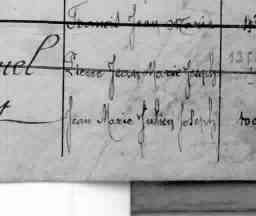 Francois Jean Marie
uel Pierre Jean Marie Joseph 135
Jean Marie Julien Joseph